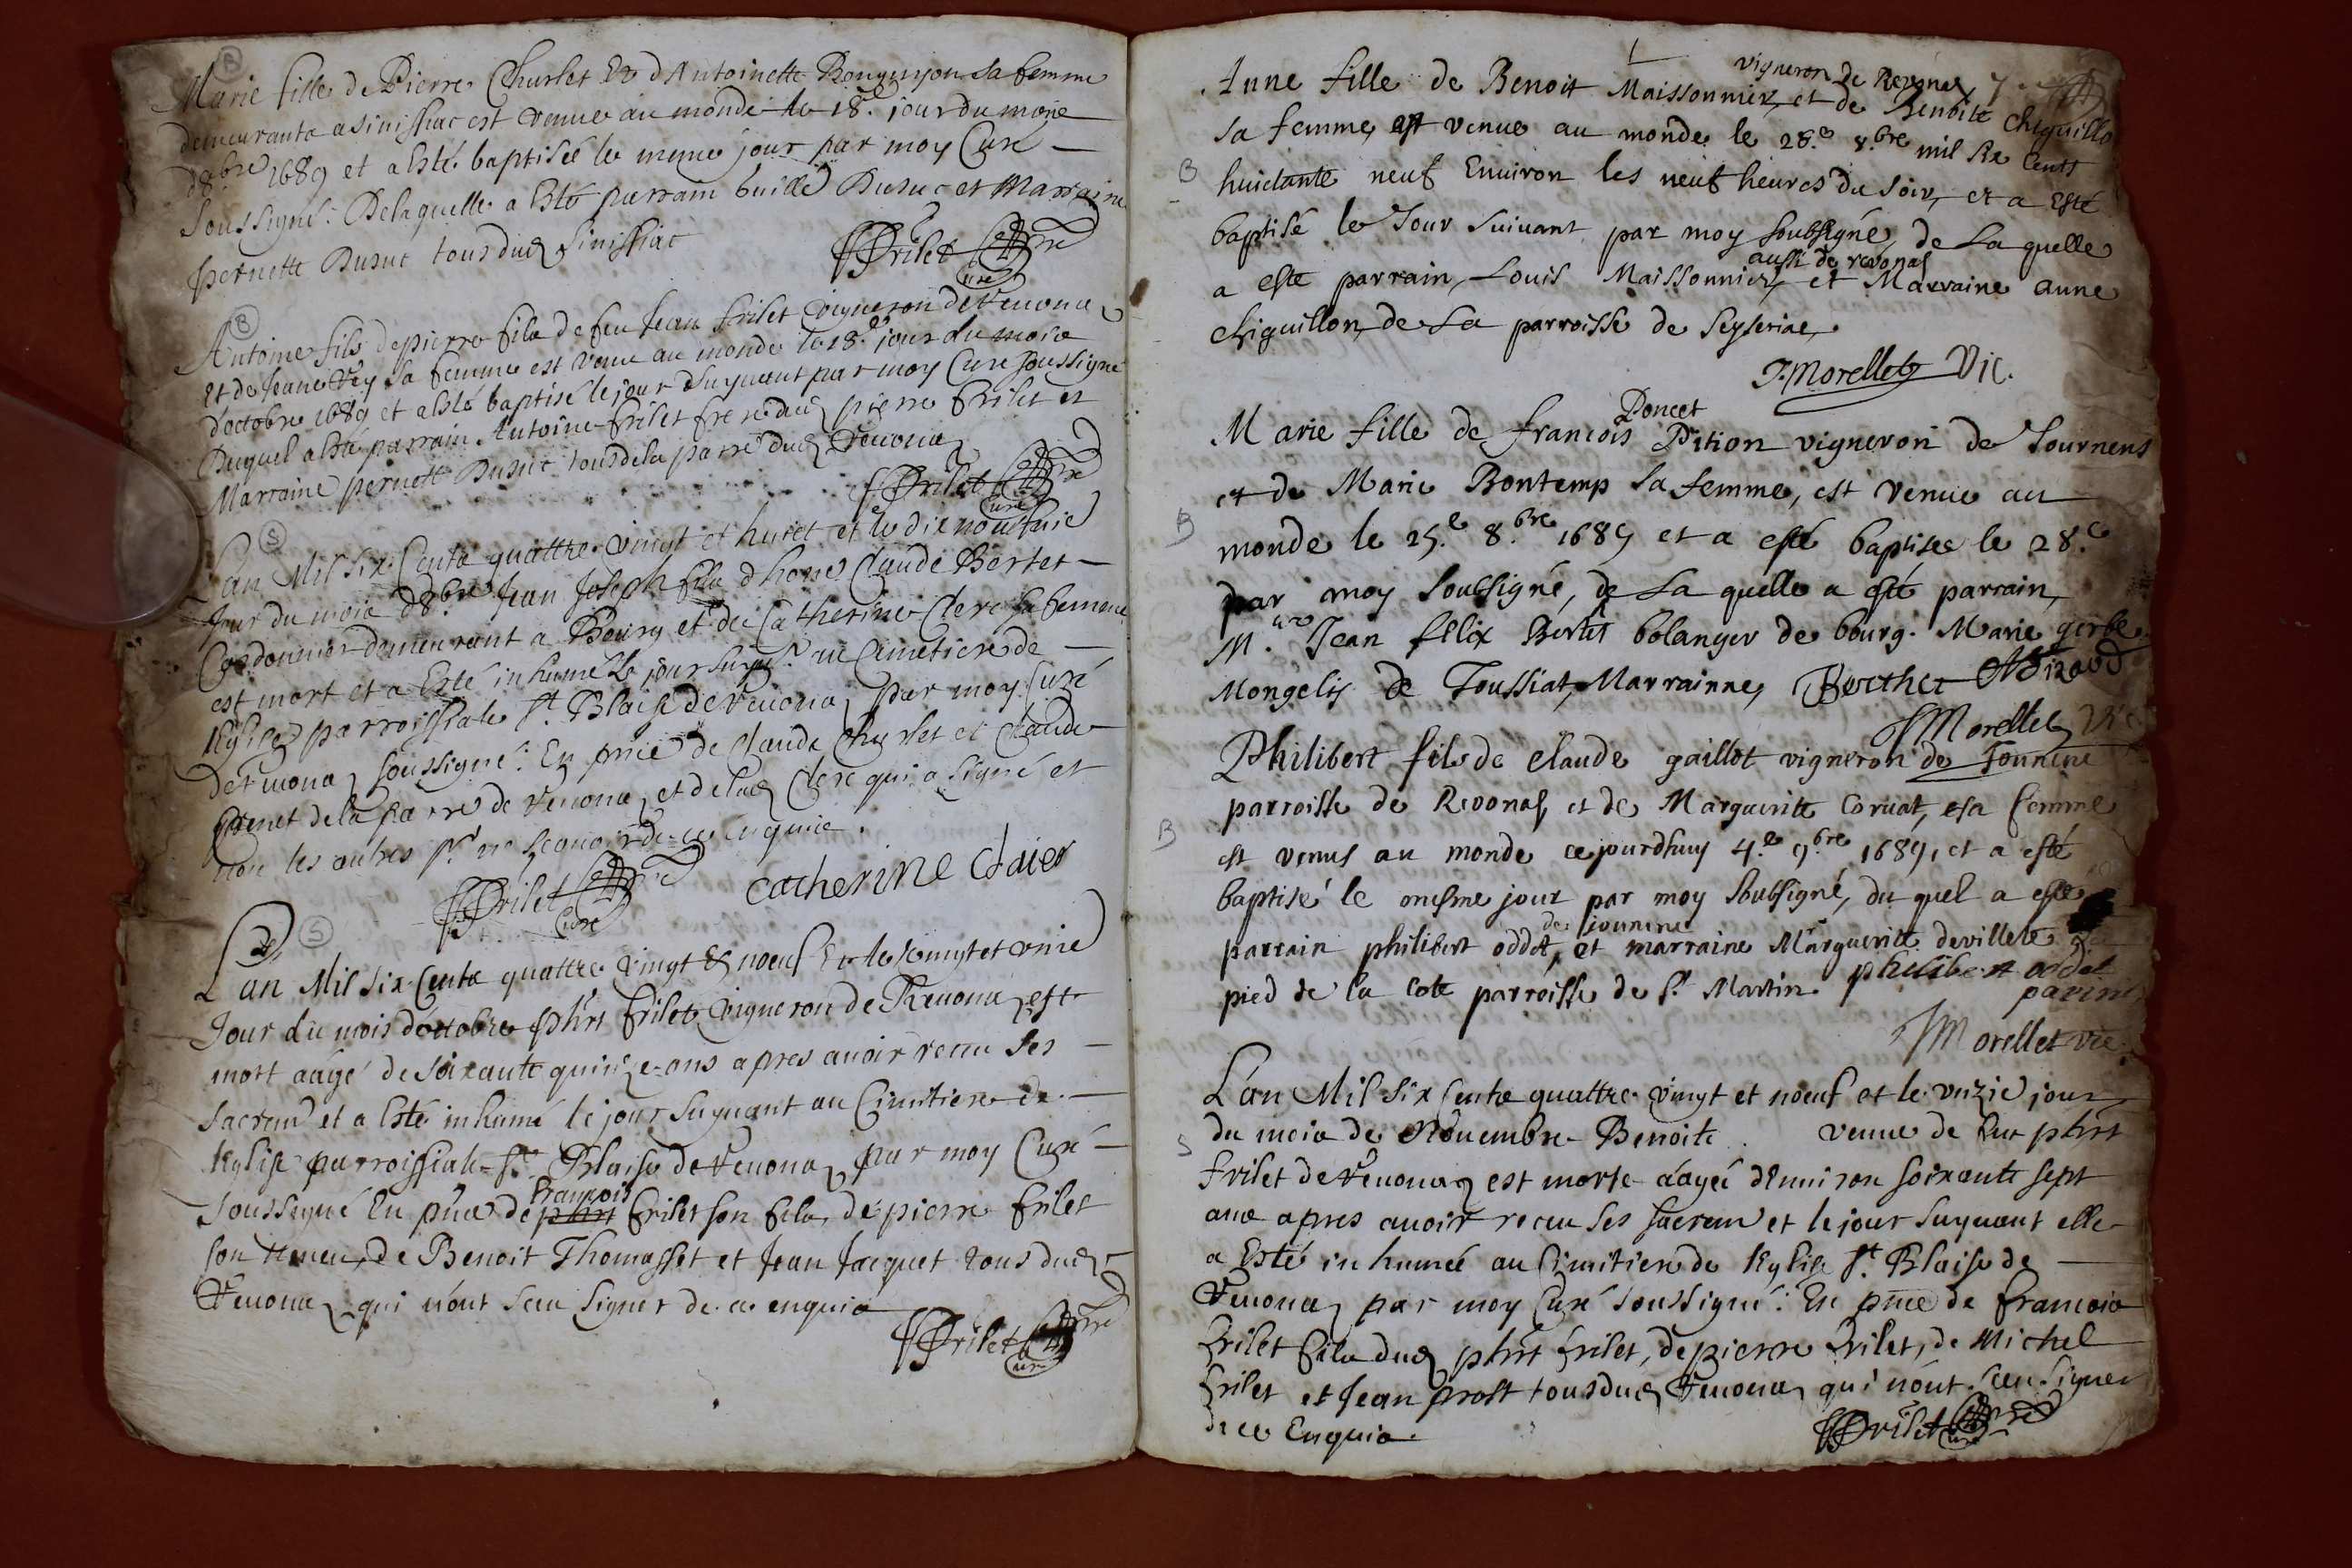 Marie fille de Pierre Churlet Et d'Antoinette sa femme
demeurants a Sinissiac est venue au monde le 18e. jour du mois
d8bre 1689 et a Esté baptisée le mesme jour par moy Curé
soussigné. De laquelle a Esté parrain et Marraine
pernette Dusuc tous dud Sinissiac
Frilet Curé
B
Antoine fils de pierre fils de feu Jean frilet vigneron de Revona
et de Jeane sa femme est venu au monde le 18e. jour du mois
d'octobre 1689 et a Esté baptisé le jour suyvant par moy Curé soussigné
Duquel a Esté parrain Antoine frilet frere dud pierre frilet et
Marraine pernette Dusuc tous de la parre dud Revona
Frilet Curé
S
L'an Mil six Cents quattre vingt et huict et le
Jour du mois d8bre Jean Joseph fils d'hone Claude Bertet
Cordonnier demeurant a Bourg et de Catherine Clerc sa femme
est mort et a Esté inhumé le jour suyvt. au Cimetiere de
l'Eglise parroissiale St. Blaise de Revona par moy Curé
de Revona soussigné. En pnce de Claude Churlet et Claude
de la parre de Revona et de lad Clerc qui a signé et
non les autres pr. ne scavoir de ce enquis.
Frilet Curé catherine claier
S
L'an Mil six Cents quattre vingt & noeuf Et le vingt et unie
Jour du mois d'octobre phrt frilet vigneron de Revona est
mort aagé de soixante quinze ans apres avoir receu ses
sacremt et a Esté inhumé le jour suyvant au Cimitiere de
l'Eglise parroissiale St. Blaise de Revona par moy Curé
françois
soussigné En pnce de phrt frilet son fils, de pierre frilet
son neveu, de Benoit Thomasset et Jean Jacquet tous dud
Revona qui n'ont sceu signer de ce enquis
Frilet Curé
vigneron de Revonas
Anne fille de Benoit Maissonnier, et de Benoite chiguillo
sa femme, est venue au monde le 28.e 8.bre mil six Cents
B
huictante neuf Environ les neuf heures du soir, et a Esté
baptisé le Jour suivant par moy soubsigné, de La quelle
aussi de revonas
a esté parrain, Louis Maissonnier, et Marraine anne
chiguillon, de La parroisse de Seyseriac.
J. Morellet Vic.
Poncet
Marie fille de francois Pition vigneron de Journens
et de Marie Bontemp sa femme, est venue au
B
monde le 25.e 8.bre 1689 et a esté baptisée le 28.e
par moy soubsigné, de La quelle a esté parrain,
M.re Jean felix Bertet bolanger de bourg. Marie gerbe
Mongelis de Toussiat, Marrainne, Berthet
J Morellet Vic
Philibert fils de Claude gaillot vigneron de Jounene
parroisse de Revonas, et de Marguerite Coruat, esa femme
B
est venus au monde cejourdhuy 4.e 9.bre 1689, et a esté
baptisé le mesme jour par moy soubsigné, du quel a esté
de jounene
parrain philibert oddet, et marraine Marguerite devillete
pied de la Cote parroisse de St. Martin. philibert oddet
parin
J Morellet vic
L'an Mil six Cents quattre vingt et noeuf et le unzie jour
du mois de Novembre Benoite vesve de feu phrt
S
frilet de Revona est morte aagée d'environ soixante sept
ans apres avoir receu ses sacremt et le jour suyvant elle
a Esté inhumée au Cimitiere de l'Eglise St. Blaise de
Revona par moy Curé soussigné. En pnce de francois
frilet fils dud phrt frilet, de pierre frilet, de Michel
frilet et Jean prost tous dud Revona qui n'ont sceu signer
de ce Enquis.
Frilet Curé